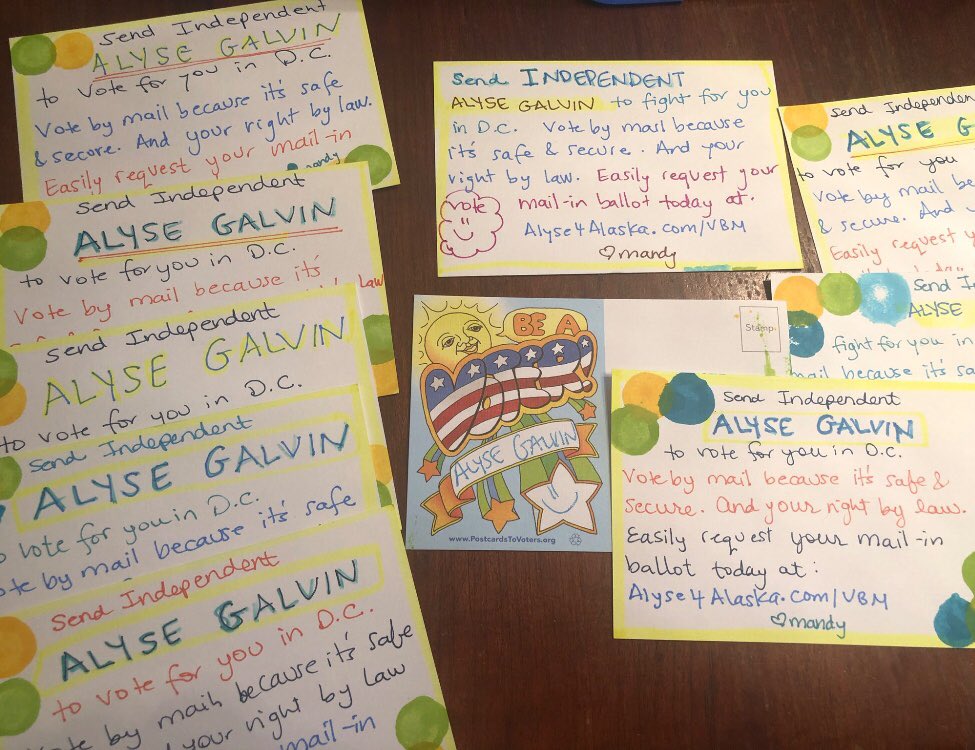 Send Independent
ALYSE GALVIN
to vote for you in D.C.
Vote by mail because it's safe
& secure. And your right by law.
Easily request your mail-in
mandy
Send Independent
ALYSE GALVIN
to vote for you in D.C.
Vote by mail because it's
Law
Send Independent
ALYSE GALVIN
to vote for you in D.C.
Send Independent
ALYSE GALVIN
vote for you in D.C.
by mail because it's safe
Send Independent
ALYSE GALVIN
to vote for you in D.C.
by mail because it's safe
your right by law
mail-in
Send INDEPENDENT
ALYSE GALVIN to fight for you
in D.C. Vote by mail because
it's safe & secure. And your
right by law. Easily request your
mail-in ballot today at:
Alyse4Alaska.com/VBM
♡mandy
vote
BE A
VOTER
ALYSE GALVIN
www.PostcardsToVoters.org
Stamp
Send Independent
ALYSE G
to vote for you
Vote by mail be
& secure. And
Easily request y
Send In
ALYSE
fight for you in
mail because it's sa
Send Independent
ALYSE GALVIN
to vote for you in D.C.
Vote by mail because it's safe &
secure. And your right by law.
Easily request your mail-in
ballot today at:
Alyse4Alaska.com/VBM
♡mandy